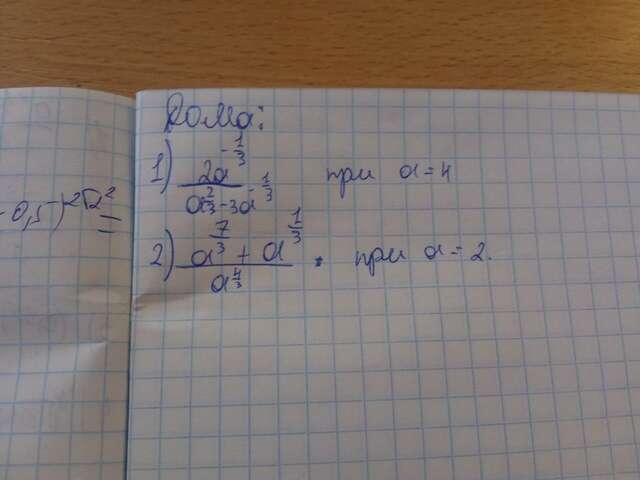 Дома:
1) \frac{2a^{-\frac{1}{3}}}{a^{\frac{2}{3}} - 3a^{-\frac{1}{3}}} при a = 4
- 0,5)^{2\sqrt{2}^2} =
2) \frac{a^{\frac{7}{3}} + a^{\frac{1}{3}}}{a^{\frac{4}{3}}} . при a = 2.